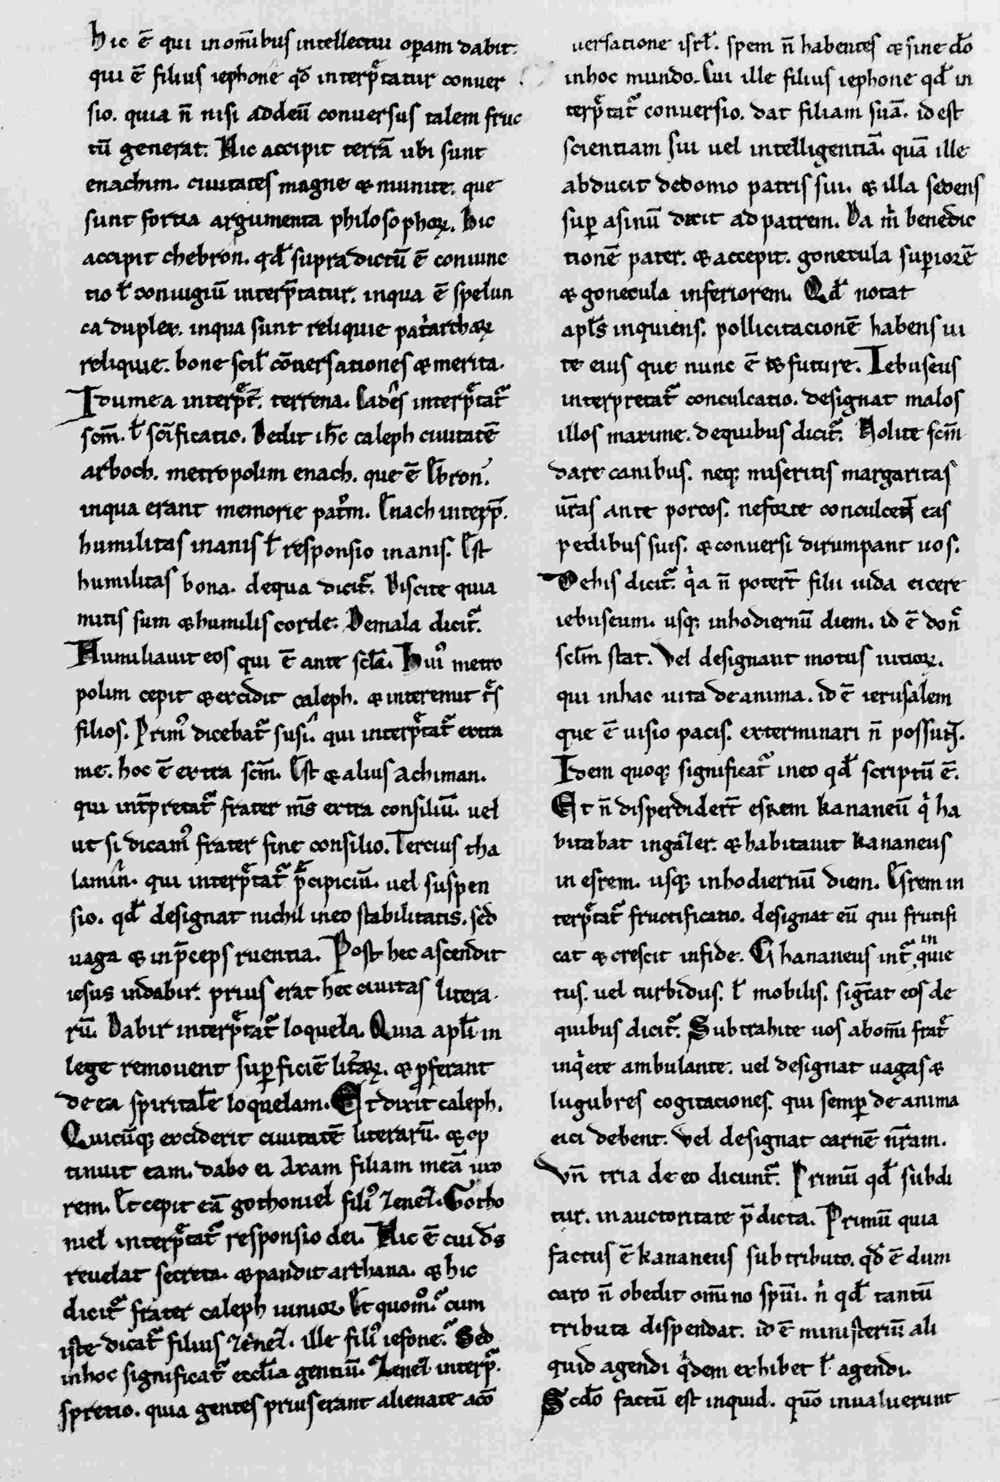 hic ē qui in om̄ibus intellectui operam dabit.
qui ē filius iephone qđ interp̄tatur conuer
sio. quia n̄ nisi ad deū conuersus talem fruc
tū generat. Hic accipit terrā ubi sunt
enachim. ciuitates magne & munite. que
sunt fortia argumenta philosophoꝝ. hic
accipit chebron. qđ supra dictū ē coniunc
tio ł coniugiū interp̄tatur. in qua ē spelun
ca duplex. in qua sunt reliquie pat'archaꝝ
reliquie. bone scil' cōuersationes & merita.
Idumea interp̄t͛. terrena. Cades interp̄tat͛
scm̄. ł sc̄ificatio. Dedit ih̄c caleph ciuitatē
arboch. metropolim enach. que ē ebron.
in qua erant memorie pat'm. Enach interp̄.
humilitas inanis ł responsio inanis. Est
humilitas bona. de qua dicit͛. Discite quia
mitis sum & humilis corde. De mala dicit͛.
Humiliauit eos qui ē ante scl̄a. Hui᷒ metro
polim cepit & excidit caleph. & interemit t͛s
filios. Prim᷒ dicebat͛ susi. qui interp̄tat͛ extra
me. hoc ē extra scm̄. Est & alius achiman.
qui int̄pretat͛ frater m̄s extra consiliū. uel
ut si dicam᷒ frater sine consilio. Tercius tha
lamin. qui interp̄tat͛ p̄cipiciū. uel suspen
sio. qđ designat nichil in eo stabilitatis. sed
uaga & in p̄ceps ruentia. Post hec ascendit
iesus in dabir. prius erat hec ciuitas litera
rū. Dabir interp̄tat͛ loquela. Quia apl̄i in
lege remouent superficiē lit'aꝝ. & proferant
de ea spiritalē loquelam. Et dixit caleph.
Quicūq; exciderit ciuitatē literarū. & op
tinuit eam. dabo ei axam filiam meā uxo
rem. Et cepit eā gothoniel fili᷒ zenez. Gotho
niel interp̄tat͛ responsio dei. Hic ē cui d̄s
reuelat secreta. & pandit archana. & hic
dicit͛ frater caleph iunior. Et quom᷒ cum
iste dicat͛ filius zenez. ille fili᷒ iefone. Sed
in hoc significat͛ eccl̄ia gentiū. Zenez interp̄.
spretio. quia gentes prius erant alienate a c̄o
uersatione isrl̄. spem n̄ habentes & sine d̄o
in hoc mundo. Cui ille filius iephone qđ in
terp̄tat͛ conuersio. dat filiam suā. id est
scientiam sui uel intelligentiā. quā ille
abducit de domo patris sui. & illa sedens
super asinū dixit ad patrem. Da m̄ benedic
tionē pater. & accepit. gonetula superiorē
& gonecula inferiorem. Qđ notat
apl̄s inquiens. pollicitacionē habens ui
te eius que nunc ē & future. Iebuseus
interpretat͛ conculcatio. designat malos
illos maxime. de quibus dicit͛. Nolite scm̄
dare canibus. neq; miseritis margaritas
ur̄as ante porcos. ne forte conculcent eas
pedibus suis. & conuersi dirumpant uos.
De his dicit͛. q'a n̄ potert̄ filii iuda eicere
iebuseum. usq; in hodiernū diem. id ē don͛
sclm̄ stat. Vel designant motus uitioꝝ.
qui in hac uita de anima. id ē ierusalem
que ē uisio pacis. exterminari n̄ possunt.
Idem quoq; significat͛ in eo qđ scriptū ē.
Et n̄ disperdidert̄ esrem kananeū q' ha
bitabat in gaz̄er. & habitauit kananeus
in esrem. usq; in hodiernū diem. Esrem in
terp̄tat͛ fructificatio. designat eū qui frutifi
cat & crescit in fide. Chananeus int͛ inquie
tus. uel turbidus. ł mobilis. sig̅t̄at eos de
quibus dicit͛. Subtrahite uos ab om̄i frat͛
inq'ete ambulante. uel designat uagas &
lugubres cogitaciones. qui semper de anima
eici debent. Vel designat carnē nr̄am.
Vn̄ tria de eo dicunt͛. Primū qđ subdi
tur. in auctoritate p̄dicta. Primū quia
factus ē kananeus sub tributo. qđ ē dum
caro n̄ obedit om̄ino sp̄ui. n' qđ tantū
tributa dispendat. id ē ministeriū ali
quid agendi q'dem exhibet ł agendi.
Scd̄o factū est inquid. quō inualuerunt